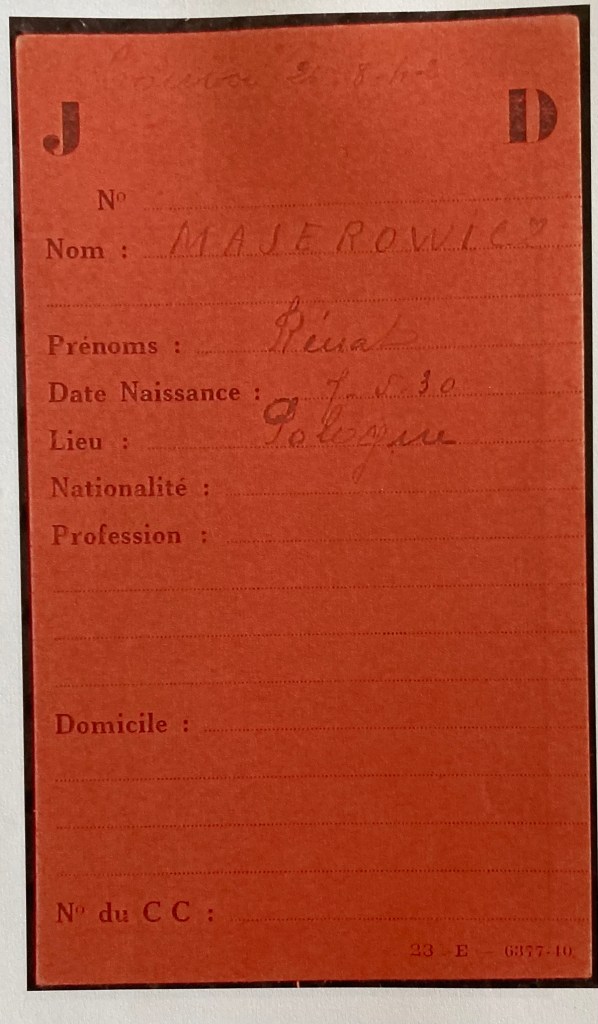 J D
Nº
Nom : MAJEROWICZ
Prénoms :
Date Naissance : 7.5.30
Lieu : Pologne
Nationalité :
Profession :
Domicile :
Nº du C C :
23 - E - 6377-40